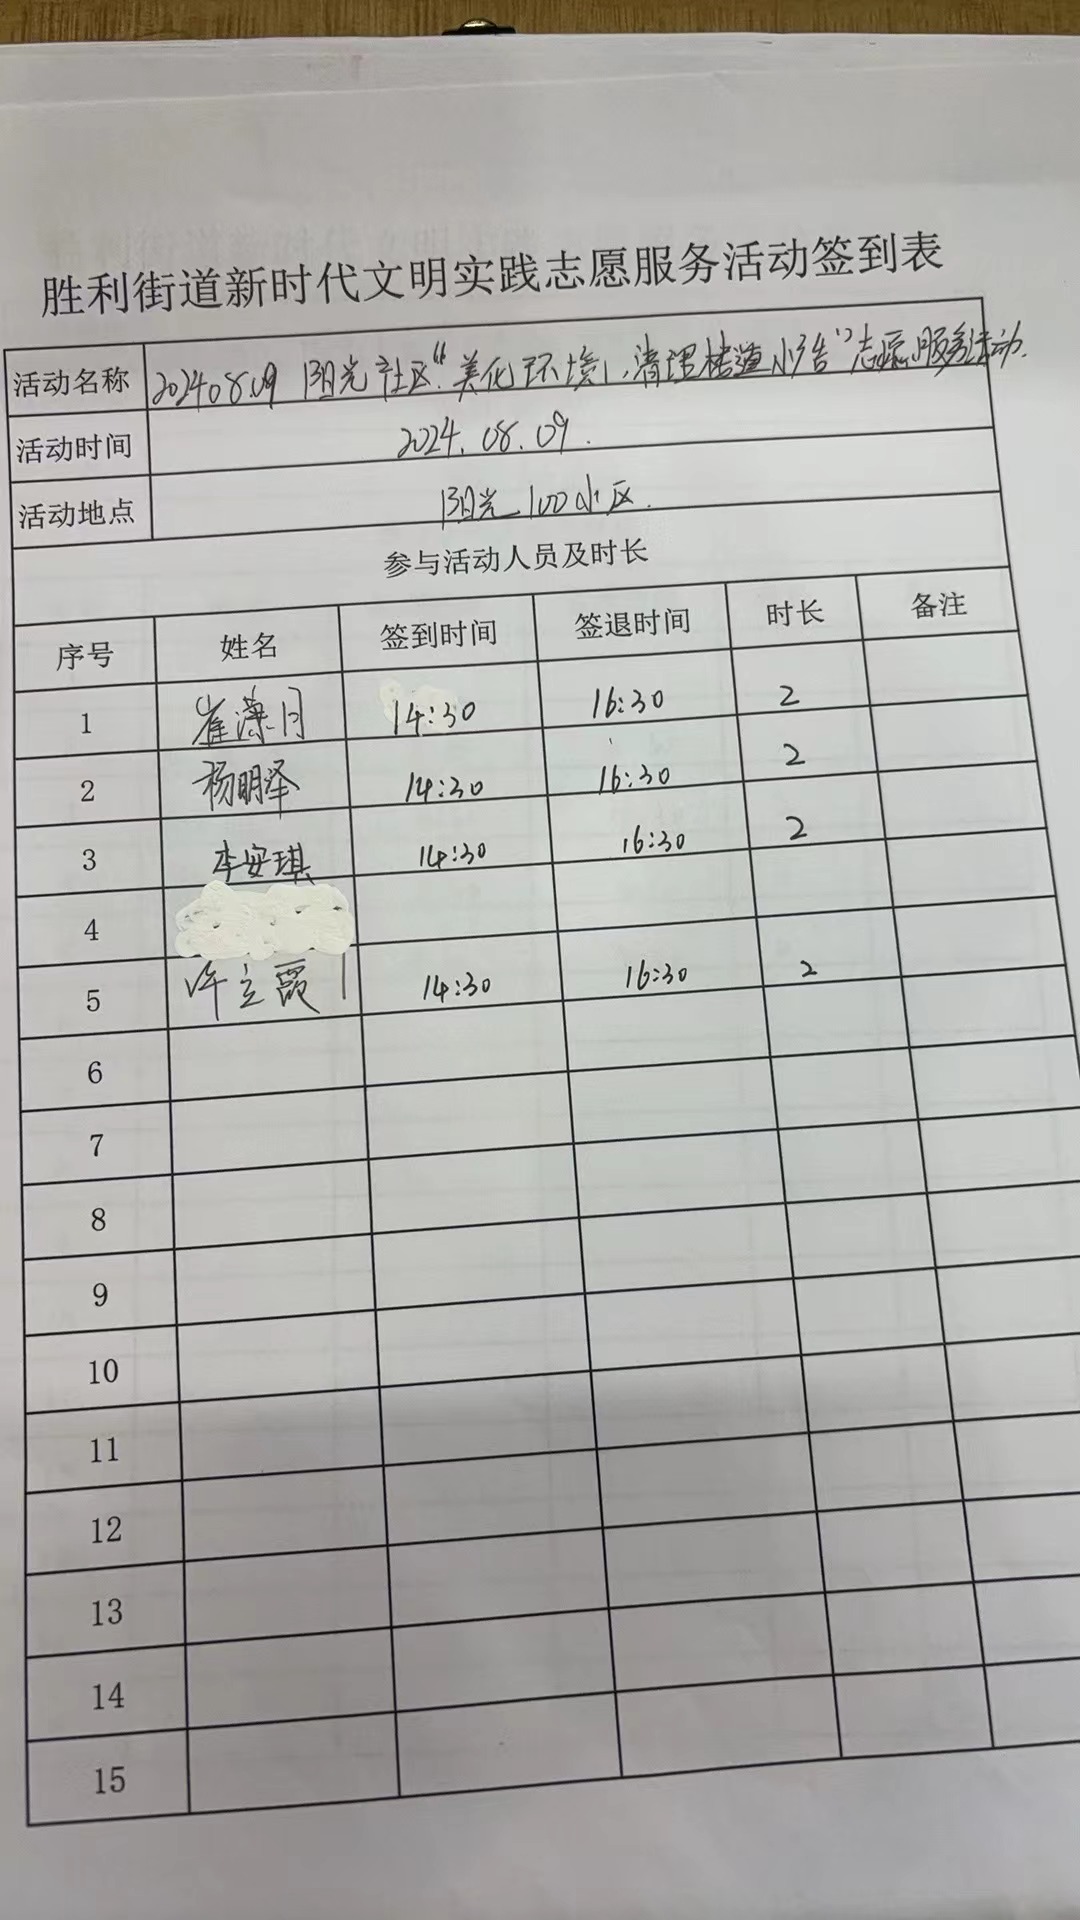 胜利街道新时代文明实践志愿服务活动签到表
活动名称 20240809 阳光社区“美化环境、清理楼道小广告”志愿服务活动.
活动时间 2024.08.09.
活动地点 阳光100小区.
参与活动人员及时长
序号 姓名 签到时间 签退时间 时长 备注
1 崔潆月 14:30 16:30 2
2 杨明泽 14:30 16:30 2
3 李安琪 14:30 16:30 2
4
5 许立霞 14:30 16:30 2
6
7
8
9
10
11
12
13
14
15